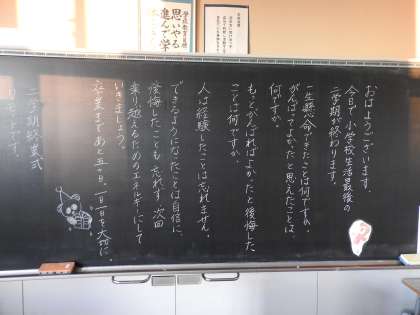 思いやる
進んで学
おはようございます。
今日で小学校生活最後の
二学期が終わります。
一生懸命できたことは何ですか。
がんばってよかたと思えたことは
何ですか。
もっとがんばればよかったと後悔した
ことは何ですか。
人は経験したことは忘れません。
できるようになたことは自信に、
後悔したことも忘れず、次回
乗り越えるためのエネルギーにして
いきましょう。
卒業まであと五十日、一日一日を大切に。
二学期終業式
リモートです。